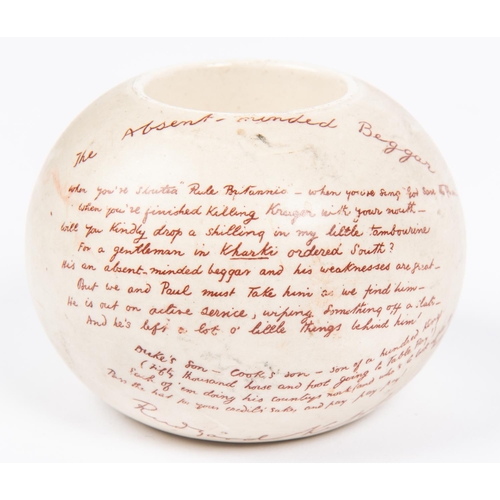 The Absent-minded Beggar
When you've shouted "Rule Britannia - when you've sung "God save the
When you've finished Killing Kruger with your mouth -
Will you Kindly drop a shilling in my little tambourine
For a gentleman in Kharki ordered South?
He's an absent-minded beggar and his weaknesses are great -
But we and Paul must take him as we find him -
He is out on active service, wiping something off a slate -
And he's left a lot o' little things behind him
Duke's son - Cook's son - son of a hundred Kings
(Fifty thousand horse and foot going to Table Bay
Each of 'em doing his country's work and who's to look
Pass the hat for your credit's sake, and pay pay pay
Rudyard